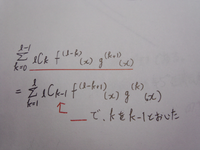 l-1
Σ lCk f^(l-k)(x) g^(k+1)(x)
k=0
= Σ_{k=1}^{l} lCk-1 f^(l-k+1)(x) g^(k)(x)
で、kをk-1とおいた